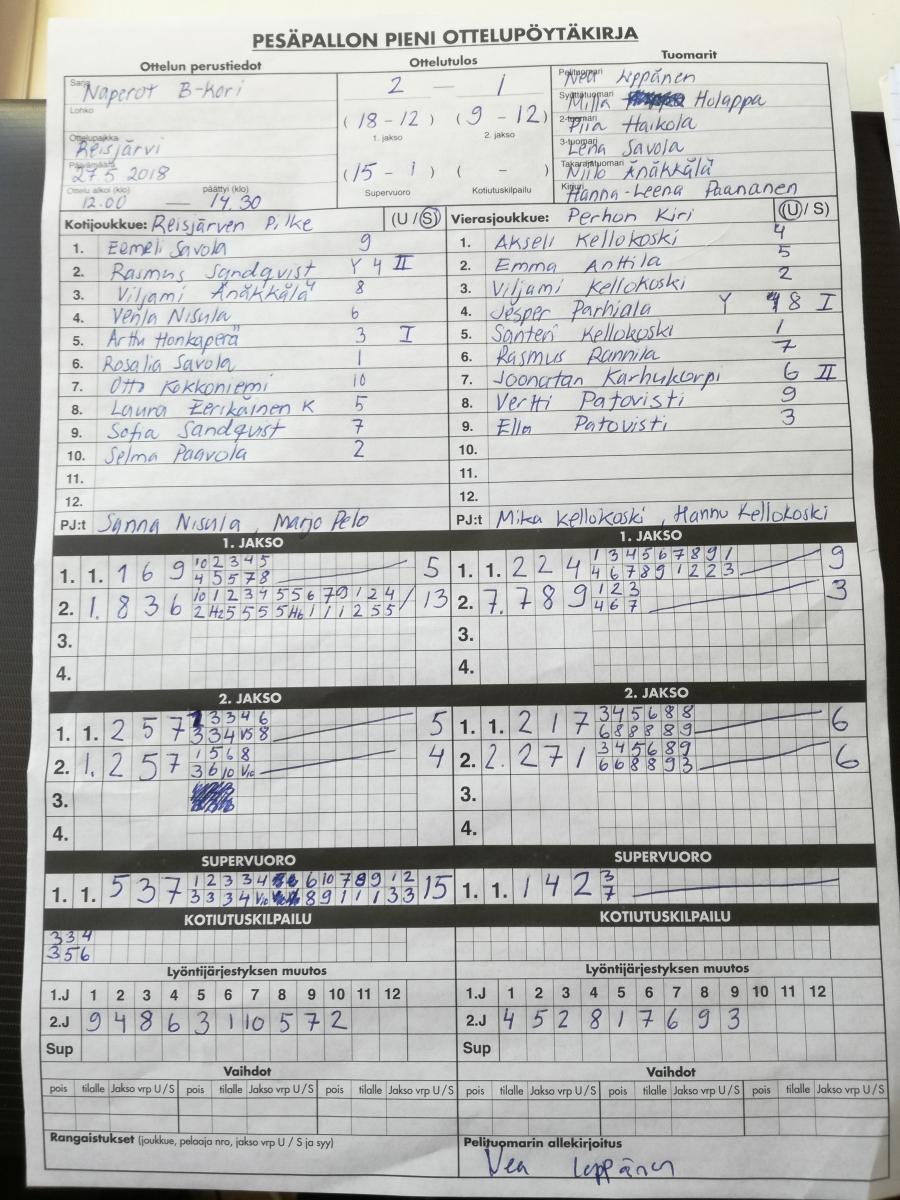 PESÄPALLON PIENI OTTELUPÖYTÄKIRJA
Ottelun perustiedot Ottelutulos Tuomarit
Sarja Naperot B-kori
Lohko
Ottelupaikka Reisjärvi
Päivämäärä 27.5 2018
Ottelu alkoi (klo) 12.00 — päättyi (klo) 14.30
2 — 1
(18 - 12) (9 - 12)
1. jakso 2. jakso
(15 - 1) ( - )
Supervuoro Kotiutuskilpailu
Pelituomari Nea Leppänen
Syöttötuomari Milla Holappa
2-tuomari Piia Haikola
3-tuomari Lena Savola
Takarajatuomari Niilo Änäkkälä
Kirjuri Hanna-Leena Paananen
Kotijoukkue: Reisjärven Pilke (U/S)
1. Eemeli Savola 9
2. Rasmus Sandqvist Y 4 II
3. Viljami Änäkkälä 8
4. Venla Nisula 6
5. Arttu Honkaperä 3 I
6. Rosalia Savola 1
7. Otto Kokkoniemi 10
8. Laura Eerikäinen K 5
9. Sofia Sandqvist 7
10. Selma Paavola 2
11.
12.
PJ:t Sanna Nisula, Marjo Pelo
Vierasjoukkue: Perhon Kiri (U/S)
1. Akseli Kellokoski 4
2. Emma Anttila 5
3. Viljami Kellokoski 2
4. Jesper Parhiala Y 8 I
5. Santeri Kellokoski 1
6. Rasmus Rannila 7
7. Joonatan Karhukorpi 6 II
8. Vertti Patovisti 9
9. Ella Patovisti 3
10.
11.
12.
PJ:t Mika Kellokoski, Hannu Kellokoski
1. JAKSO
1. 1. 1 6 9 10 2 3 4 5 5
4 5 5 7 8
2. 1. 8 3 6 10 1 2 3 4 5 5 6 7 9 1 2 4 13
2 H2 5 5 5 5 H6 1 1 1 2 5 5
3.
4.
1. JAKSO
1. 1. 2 2 4 1 3 4 5 6 7 8 9 1 9
4 6 7 8 9 1 2 2 3
2. 7. 7 8 9 1 2 3 3
4 6 7
3.
4.
2. JAKSO
1. 1. 2 5 7 3 3 4 6 5
3 3 4 V5 8
2. 1. 2 5 7 1 5 6 8 4
3 6 10 V10
3.
4.
2. JAKSO
1. 1. 2 1 7 3 4 5 6 8 8 6
6 8 8 8 8 9
2. 2. 2 7 1 3 4 5 6 8 9 6
6 6 8 8 9 3
3.
4.
SUPERVUORO
1. 1. 5 3 7 1 2 3 3 4 6 10 7 8 9 1 2 15
3 3 3 4 V10 8 9 1 1 1 3 3
SUPERVUORO
1. 1. 1 4 2 3
7
KOTIUTUSKILPAILU
3 3 4
3 5 6
KOTIUTUSKILPAILU
Lyöntijärjestyksen muutos
1.J 1 2 3 4 5 6 7 8 9 10 11 12
2.J 9 4 8 6 3 1 10 5 7 2
Sup
Lyöntijärjestyksen muutos
1.J 1 2 3 4 5 6 7 8 9 10 11 12
2.J 4 5 2 8 1 7 6 9 3
Sup
Vaihdot
pois tilalle Jakso vrp U/S pois tilalle Jakso vrp U/S pois tilalle Jakso vrp U/S
Vaihdot
pois tilalle Jakso vrp U/S pois tilalle Jakso vrp U/S pois tilalle Jakso vrp U/S
Rangaistukset (joukkue, pelaaja nro, jakso vrp U / S ja syy)
Pelituomarin allekirjoitus
Nea Leppänen